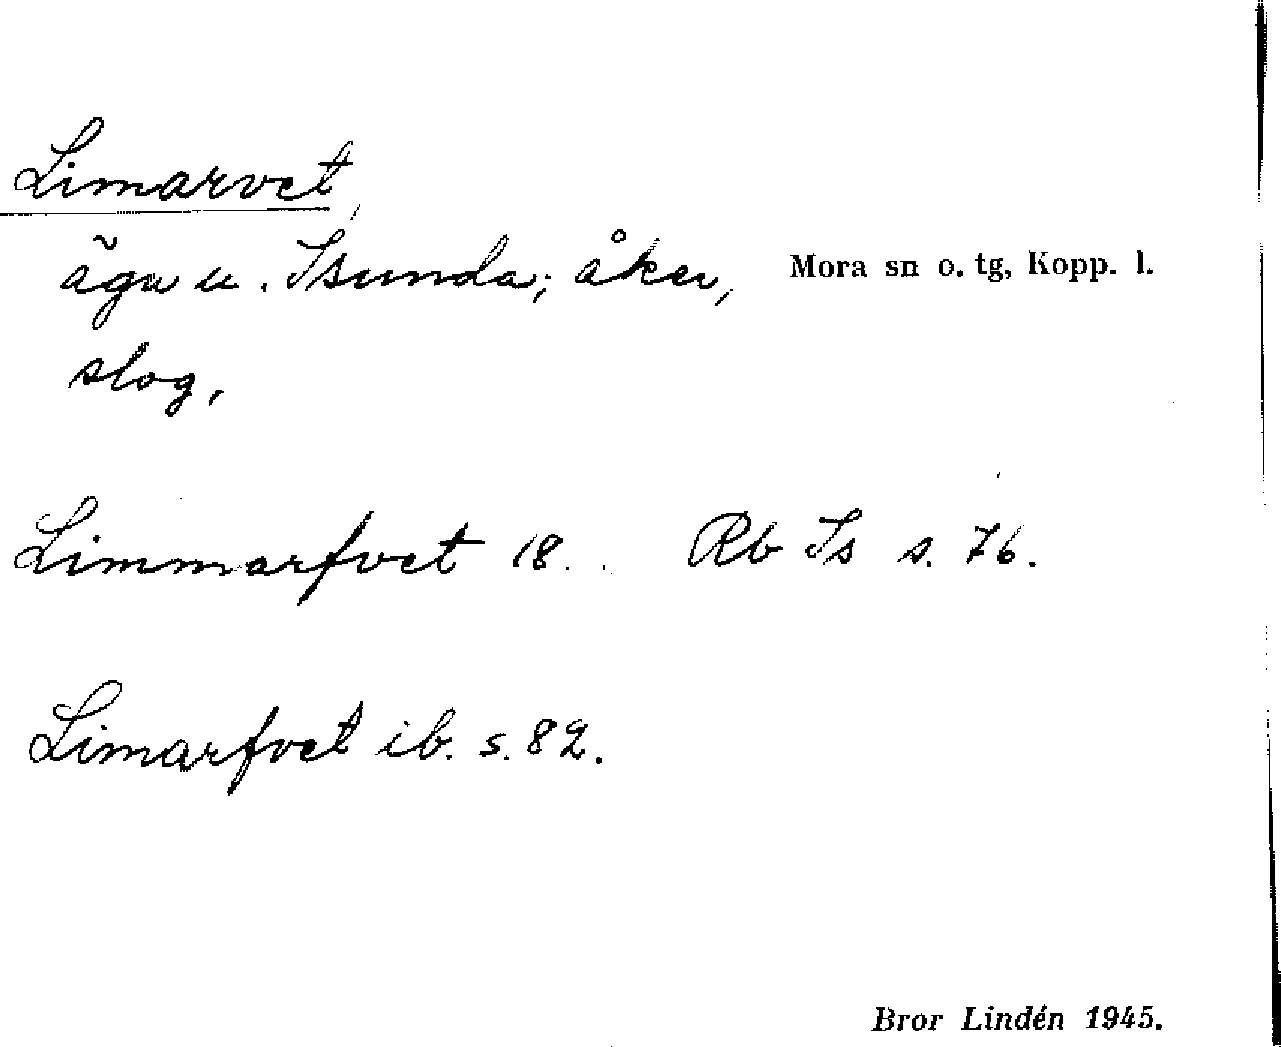 Limarvet,
ägor u. Isunda; åker,
Mora sn o. tg, Kopp. l.
slog,
Limmarfvet 18 . . Rb Is s. 76.
Limarfvet ib. s. 82.
Bror Lindén 1945.